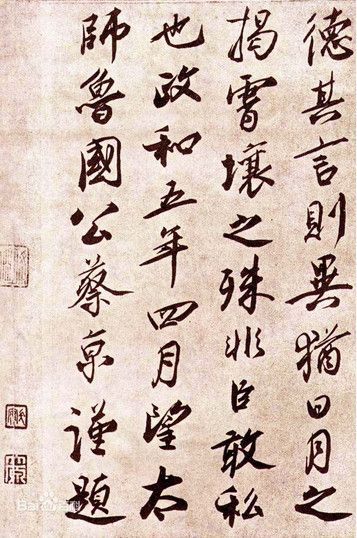 德其言則異猶日月之
揭霄壤之殊非臣敢私
也政和五年四月望太
師魯國公蔡京謹題
Bai百科